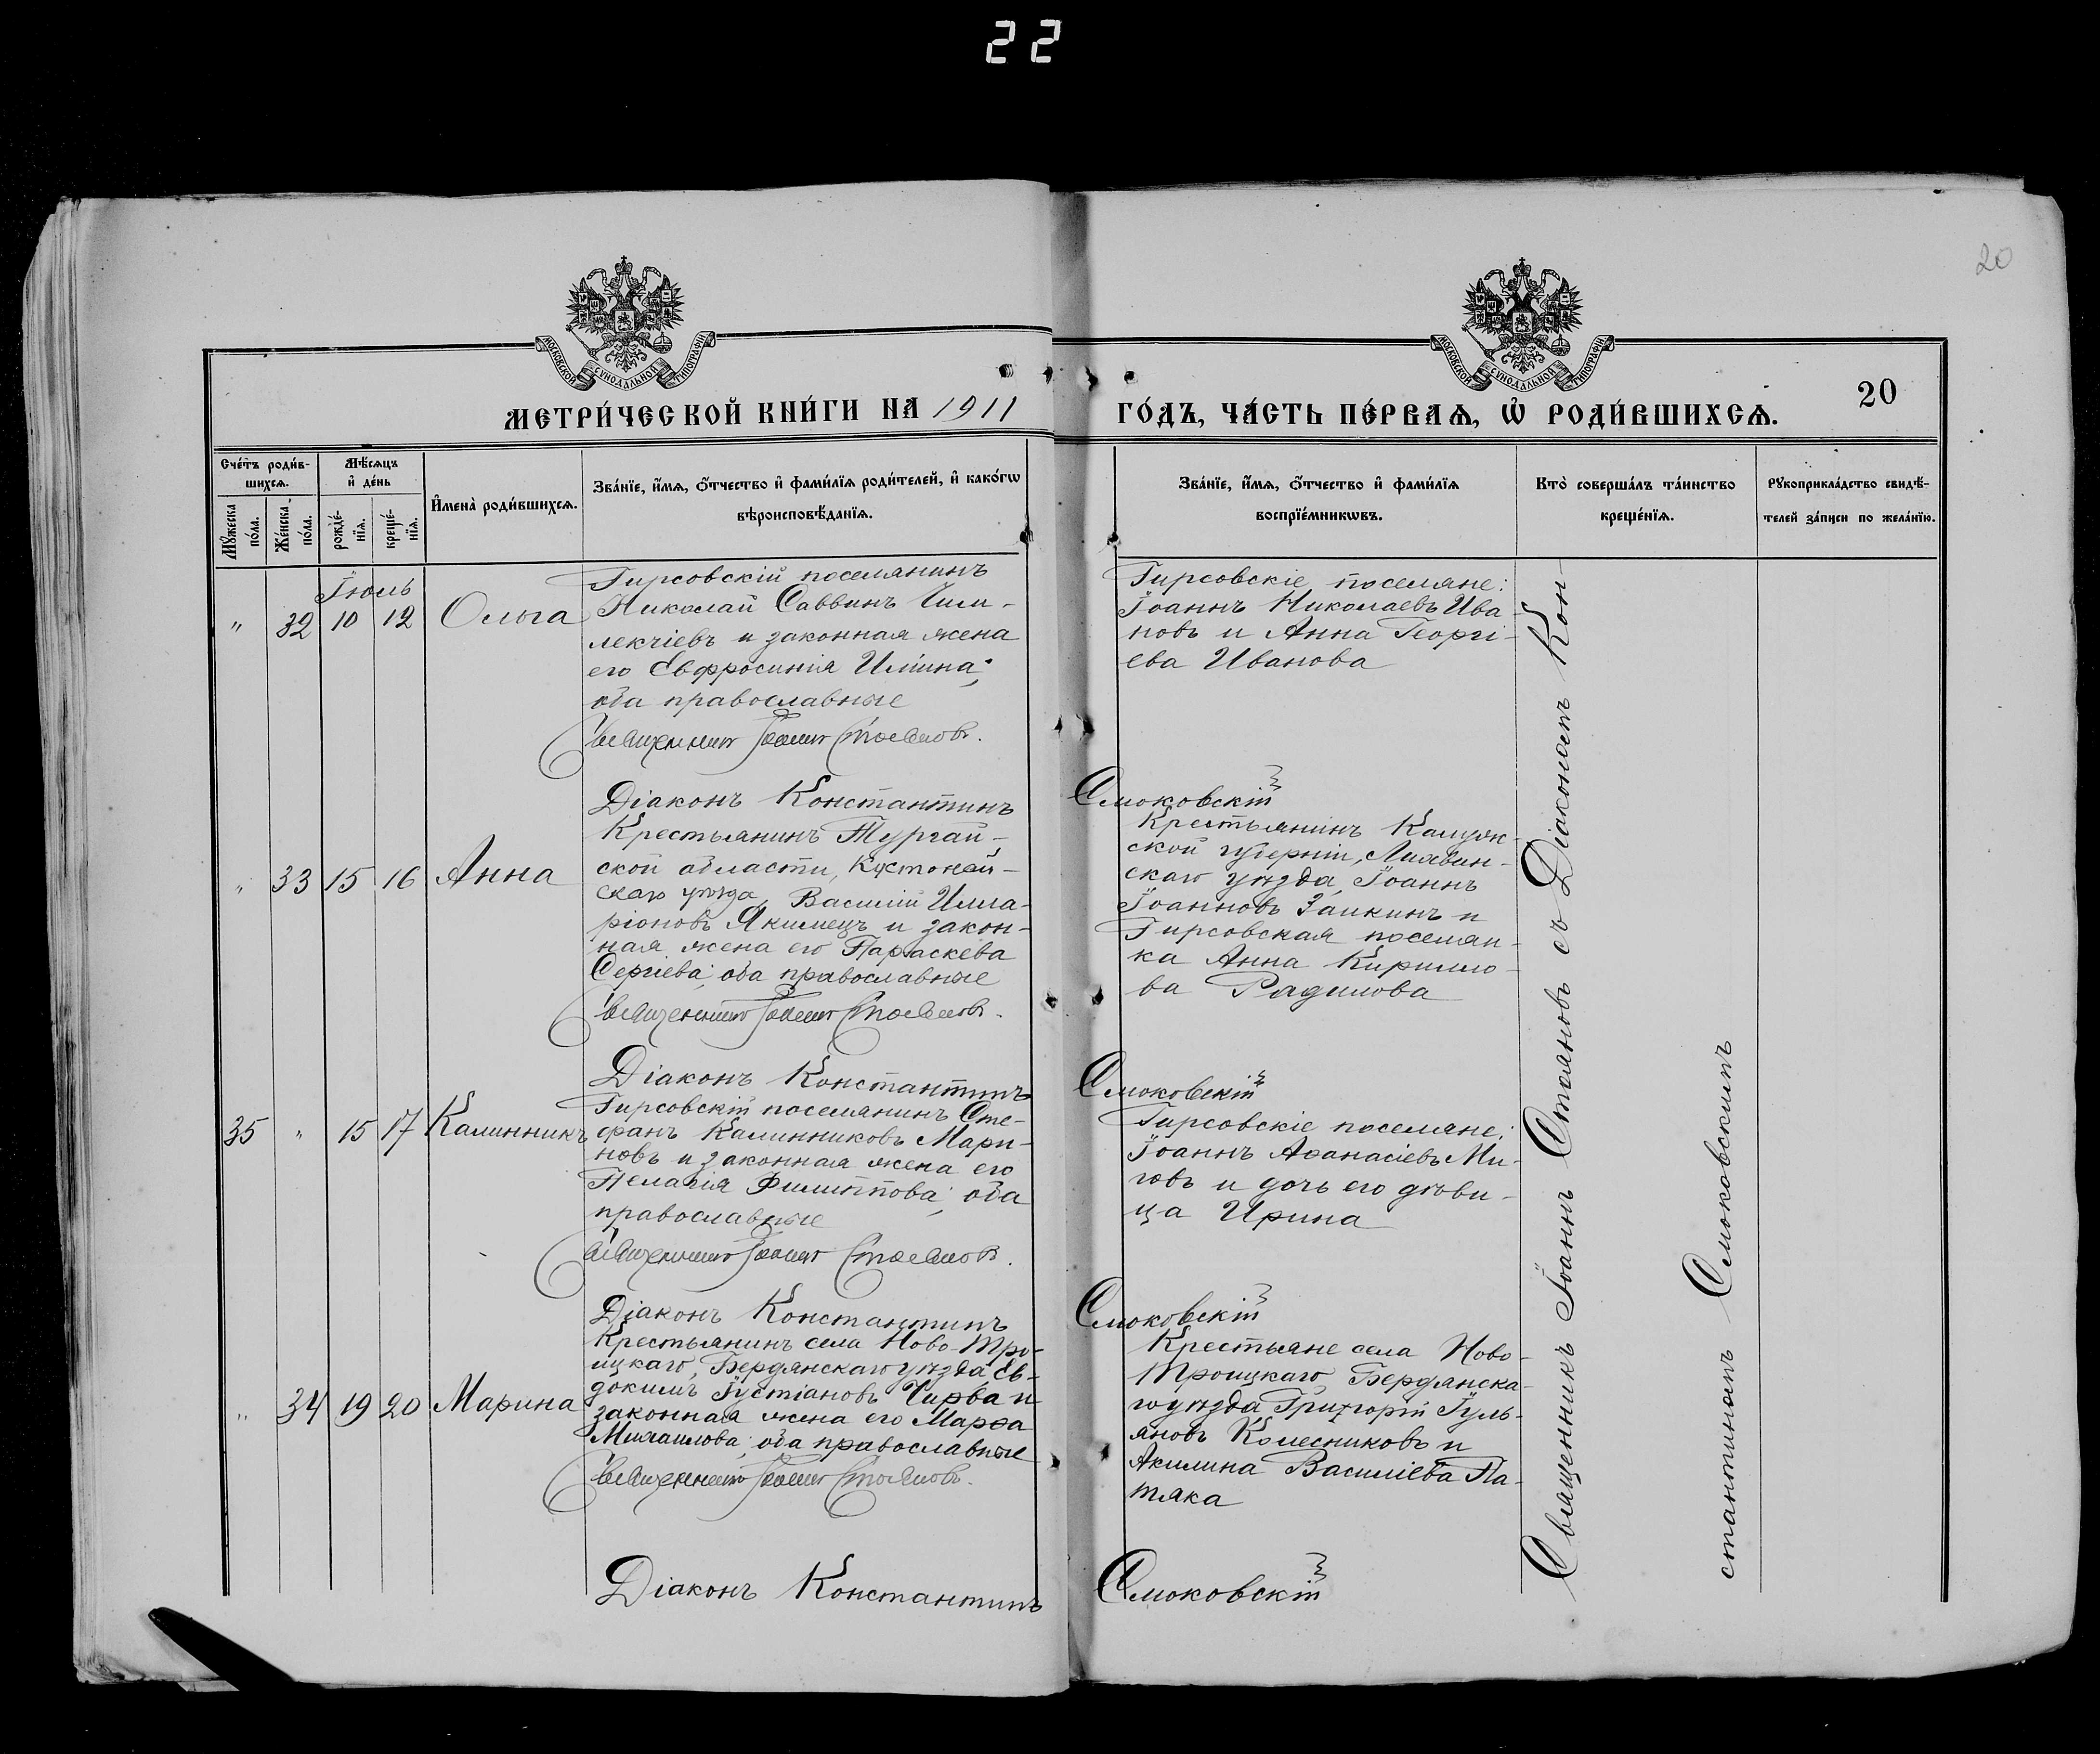 22
20
МОСКОВСКОЙ СѴНОДАЛЬНОЙ ТИПОГРАФІИ
МОСКОВСКОЙ СѴНОДАЛЬНОЙ ТИПОГРАФІИ
МЕТРИ́ЧЕСКОЙ КНИ́ГИ НА 1911
ГО́ДЪ, ЧА́СТЬ ПЕ́РВАѦ, Ѡ҆ РОДИ́ВШИХСѦ.
20
Сче́тъ роди́в-
шихсѧ.
Мѣ́сѧцъ
и҆ де́нь
И҆мена̀ роди́вшихсѧ.
Зва́нїе, и҆́мѧ, ѻ҆́тчество и҆ фами́лїѧ роди́телей, и҆ како́гѡ
вѣроисповѣ́данїѧ.
Мꙋ́жеска
по́ла.
Же́нска
по́ла.
рожде́-
нїѧ.
креще́-
нїѧ.
Зва́нїе, и҆́мѧ, ѻ҆́тчество и҆ фами́лїѧ
воспрїе́мникѡвъ.
Кто̀ соверша́лъ та́инство
креще́нїѧ.
Рꙋкоприкла́дство свидѣ́-
телей за́писи по жела́нїю.
Іюль
" 32 10 12 Ольга
Гирсовскій поселянинъ
Николай Саввинъ Чили-
лекчіевъ и законная жена
его Евфросинія Ильина;
оба православные
Священникъ Іоаннъ Стояновъ.
Діаконъ Константинъ
Гирсовскіе поселяне:
Іоаннъ Николаевъ Ива-
новъ и Анна Георгі-
ева Иванова
Смоковскій
" 33 15 16 Анна
Крестьянинъ Тургай-
ской области, Кустонай-
скаго уѣзда, Василій Илла-
ріоновъ Якимецъ и закон-
ная жена его Параскева
Сергіева; оба православные
Священникъ Іоаннъ Стояновъ.
Діаконъ Константинъ
Крестьянинъ Калуж-
ской губерніи,
скаго уѣзда, Іоаннъ
Іоанновъ Заикинъ и
Гирсовская поселян-
ка Анна Кирилло-
ва Радилова
Смоковскій
35 " 15 17 Калинникъ
Гирсовскій поселянинъ Сте-
фанъ Калинниковъ Мари-
новъ и законная жена его
Пелагія Филиппова; оба
православные
Священникъ Іоаннъ Стояновъ.
Діаконъ Константинъ
Гирсовскіе поселяне:
Іоаннъ Аѳанасіевъ Ми-
говъ и дочь его дѣви-
ца Ирина
Смоковскій
" 34 19 20 Марина
Крестьянинъ села Ново-Тро-
ицкаго, Бердянскаго уѣзда Ев-
докимъ Іустіановъ Чирва и
законная жена его Марѳа
Михаилова; оба православные
Священникъ Іоаннъ Стояновъ.
Діаконъ Константинъ
Крестьяне села Ново-
Троицкаго, Бердянска-
го уѣзда Григорій Іуль-
яновъ Колесниковъ и
Акилина Василіева Па-
тяка
Смоковскій
Священникъ Іоаннъ Стояновъ съ Діакономъ Кон-
стантиномъ Смоковскимъ